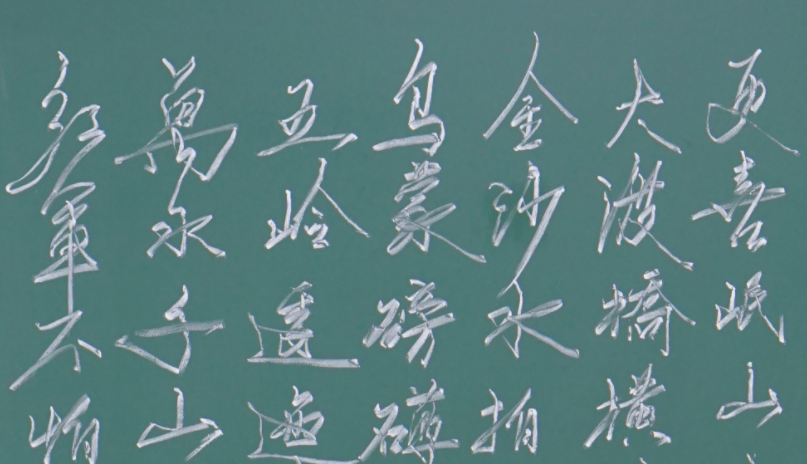 红軍不怕
萬水千山
五岭逶迤
乌蒙磅礴
金沙水拍
大渡橋横
更喜岷山